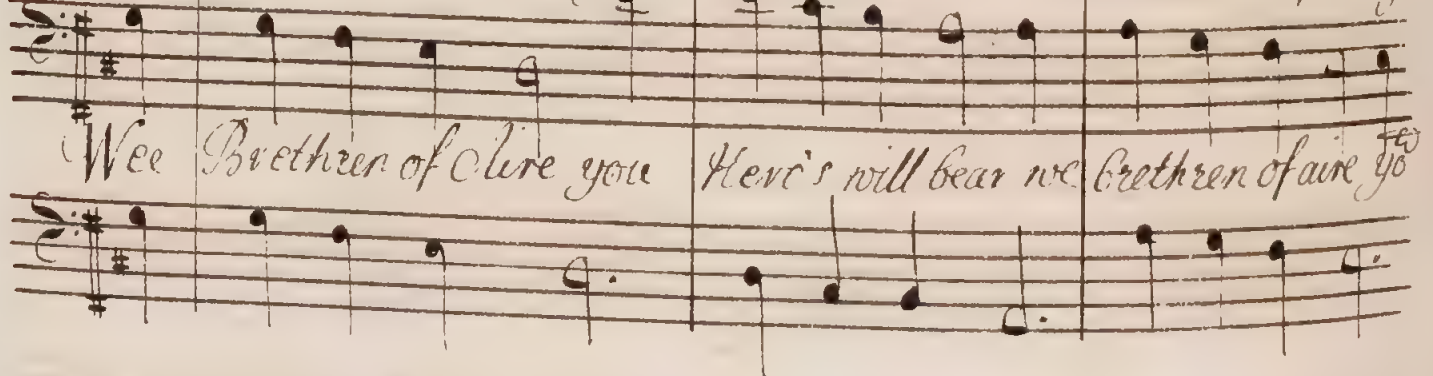 Wee Brethren of Aire you Herc's will bear we brethren of aire yo